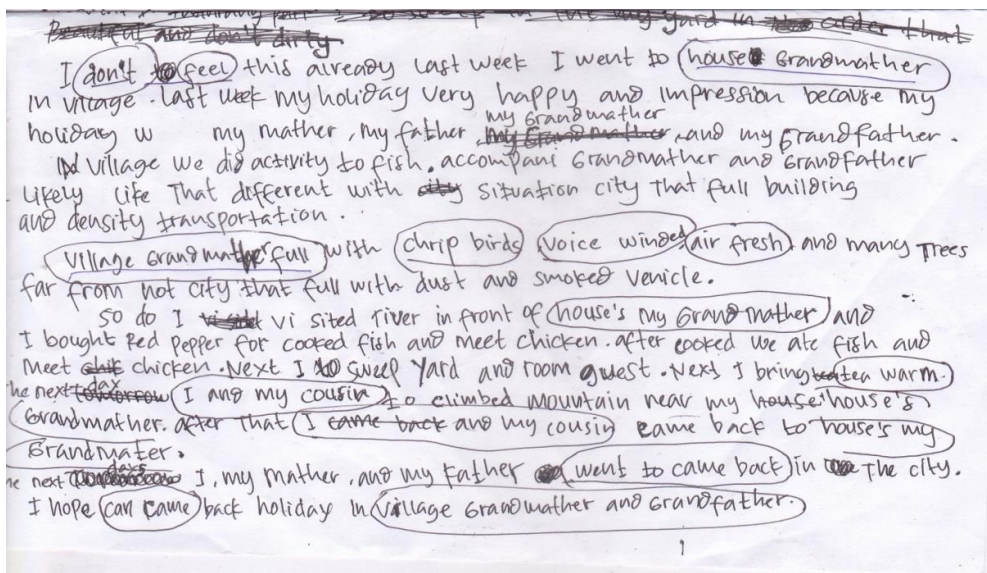 Beautiful and don't dirty
I don't to feel this already last week I went to house Grandmather
in village. last week my holiday very happy and impression because my
my Grandmather
holiday w my mather, my father, my Grandmather, and my grandfather.
In village we did activity to fish. accompani Grandmather and Grandfather
Likely like That different with city situation city That full building
and density transportation.
village Grandmather full with chrip birds voice winded air fresh and many Trees
far from hot city that full with dust and smoked venicle.
So do I vi sited river in front of house's my Grand mather and
I bought Red pepper for cooked fish and meet chicken. after cooked we ate fish and
meet chicken. Next I to sweep yard and room guest. Next I bring tea warm.
day
he next tomorrow I and my cousin to climbed mountain near my house house's
Grandmather. after That I came back and my cousin came back to house's my
Grandmater.
days
he next I, my mather, and my father went to came back in The city.
I hope can came back holiday in village Grandmather and Grandfather.